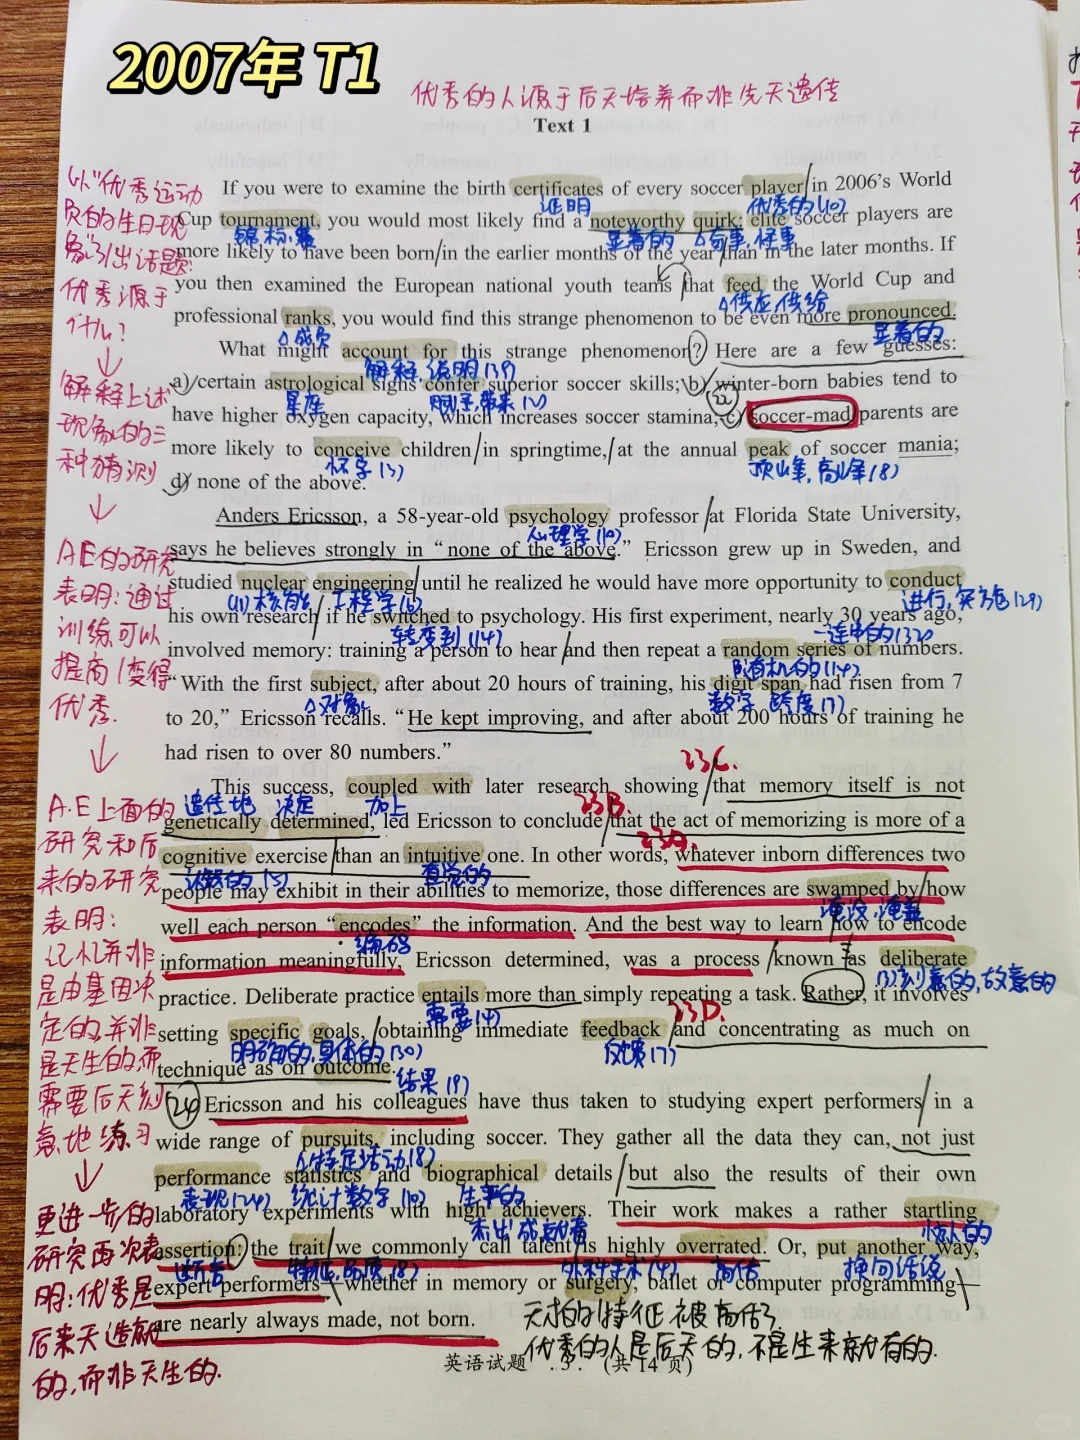 2007年 T1
优秀的人源于后天培养而非先天遗传
Text 1
If you were to examine the birth certificates of every soccer player in 2006's World
证明 优秀的(10)
Cup tournament, you would most likely find a noteworthy quirk: elite soccer players are
锦标赛 显著的 △奇事,怪事
more likely to have been born in the earlier months of the year than in the later months. If
you then examined the European national youth teams that feed the World Cup and
△供应,供给
professional ranks, you would find this strange phenomenon to be even more pronounced.
△成员 显著的
What might account for this strange phenomenon? Here are a few guesses:
解释,说明(39)
a) certain astrological signs confer superior soccer skills; b) winter-born babies tend to
星座 赋予,带来(2)
have higher oxygen capacity, which increases soccer stamina; c) soccer-mad parents are
more likely to conceive children in springtime, at the annual peak of soccer mania;
怀孕(3) 顶峰,高峰(8)
d) none of the above.
Anders Ericsson, a 58-year-old psychology professor at Florida State University,
心理学(10)
says he believes strongly in "none of the above." Ericsson grew up in Sweden, and
studied nuclear engineering until he realized he would have more opportunity to conduct
(11)核能 工程学(6) 进行,实施(29)
his own research if he switched to psychology. His first experiment, nearly 30 years ago,
转变到(14) 一连串的(32)
involved memory: training a person to hear and then repeat a random series of numbers.
随机的(14)
"With the first subject, after about 20 hours of training, his digit span had risen from 7
△对象 数字 跨度(7)
to 20," Ericsson recalls. "He kept improving, and after about 200 hours of training he
had risen to over 80 numbers."
23C.
This success, coupled with later research showing that memory itself is not
遗传地 决定 加上 23B.
genetically determined, led Ericsson to conclude that the act of memorizing is more of a
23A.
cognitive exercise than an intuitive one. In other words, whatever inborn differences two
认知的(5) 直觉的
people may exhibit in their abilities to memorize, those differences are swamped by how
淹没,淹盖
well each person "encodes" the information. And the best way to learn how to encode
编码
information meaningfully, Ericsson determined, was a process known as deliberate
(3)刻意的,故意的
practice. Deliberate practice entails more than simply repeating a task. Rather, it involves
需要(4) 23D.
setting specific goals, obtaining immediate feedback and concentrating as much on
明确的,具体的(30) 反馈(7)
technique as on outcome.
结果(9)
24 Ericsson and his colleagues have thus taken to studying expert performers in a
wide range of pursuits, including soccer. They gather all the data they can, not just
△特定活动(8)
performance statistics and biographical details but also the results of their own
表现(24) 统计数字(10) 生平的
laboratory experiments with high achievers. Their work makes a rather startling
杰出成就者 惊人的
assertion: the trait we commonly call talent is highly overrated. Or, put another way,
断言 特征,品质(8) 外科手术(4) 高估 换句话说
expert performers—whether in memory or surgery, ballet or computer programming—
are nearly always made, not born.
天才的特征被高估了.
优秀的人是后天的,不是生来就有的.
英语试题 . 3 . (共14页)
以"优秀运动
员的生日现
象"引出话题:
优秀源于
什么?
↓
解释上述
现象的三
种猜测
↓
A.E的研究
表明:通过
训练可以
提高/变得
优秀.
↓
A.E上面的
研究和后
来的研究
表明:
记忆并非
是由基因决
定的,并非
是天生的,而
需要后天刻
意地练习
↓
更进一步的
研究再次表
明:优秀是
后来天造就
的,而非天生的.